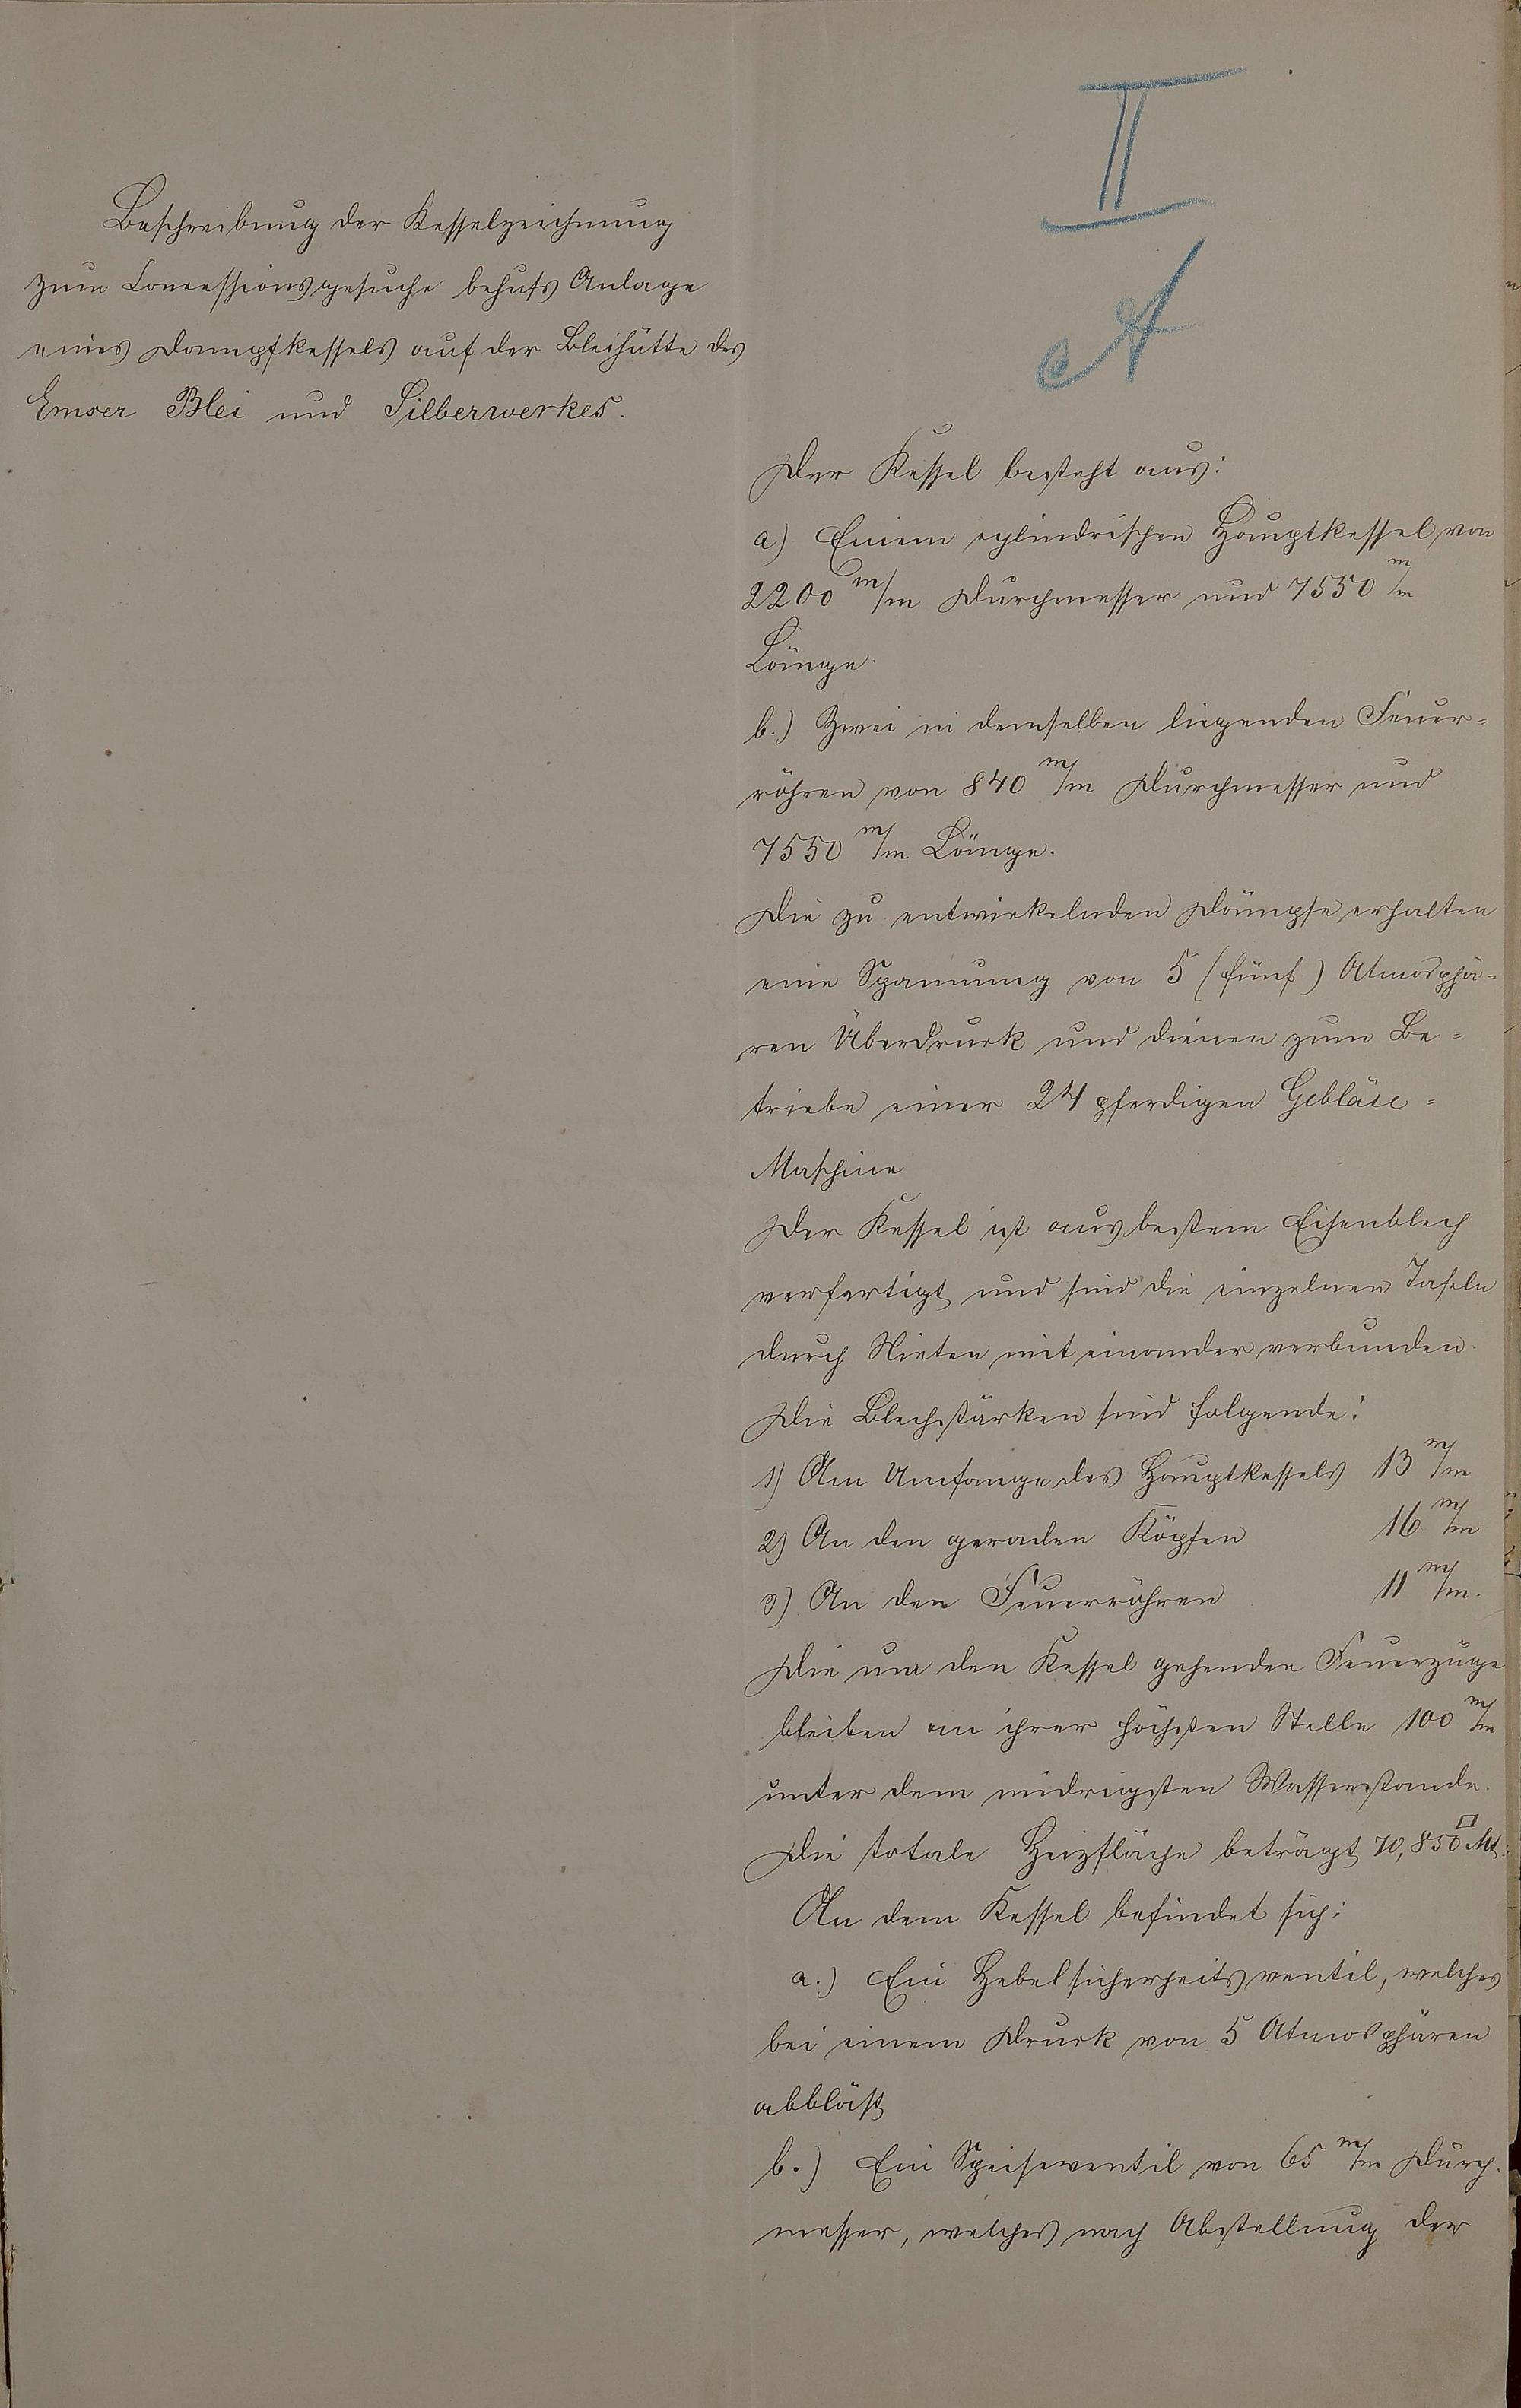 Beschreibung der Kesselzeichnung
zum Concessionsgesuche behufs Anlage
eines Dampfkessels auf der Bleihütte des
Emser Blei und Silberwerkes.
II
A
Der Kessel besteht aus:
a) Einem cylindrischen Hauptkessel von
2200 m/m Durchmesser und 7550 m/m
Länge.
b.) Zwei in demselben liegenden Feuer=
röhren von 840 m/m Durchmesser und
7550 m/m Länge.
Die zu entwickelnden Dämpfe erhalten
eine Spannung von 5 (fünf) Atmosphä=
ren Überdruck und dienen zum Be=
triebe einer 24 pferdigen Gebläse=
Maschine
Der Kessel ist aus bestem Eisenblech
verfertigt und sind die einzelnen Tafeln
durch Nieten mit einander verbunden.
Die Blechstärken sind folgende:
1) Am Umfange des Hauptkessels 13 m/m
2) An den geraden Köpfen 16 m/m
3) An den Feuerröhren 11 m/m.
Die um den Kessel gehenden Feuerzüge
bleiben an ihrer höchsten Stelle 100 m/m
unter dem niedrigsten Wasserstande.
Die totale Heizfläche beträgt 70,850 □ Mt:
An dem Kessel befindet sich:
a.) Ein Hebelsicherheitsventil, welches
bei einem Druck von 5 Atmosphären
abbläst
b.) Ein Speiseventil von 65 m/m Durch=
messer, welches nach Abstellung der